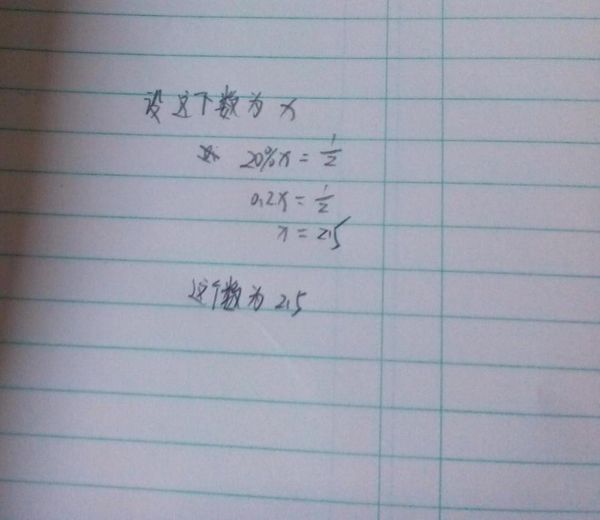 设这个数为x
20%x=1/2
0.2x=1/2
x=2.5
这个数为2.5